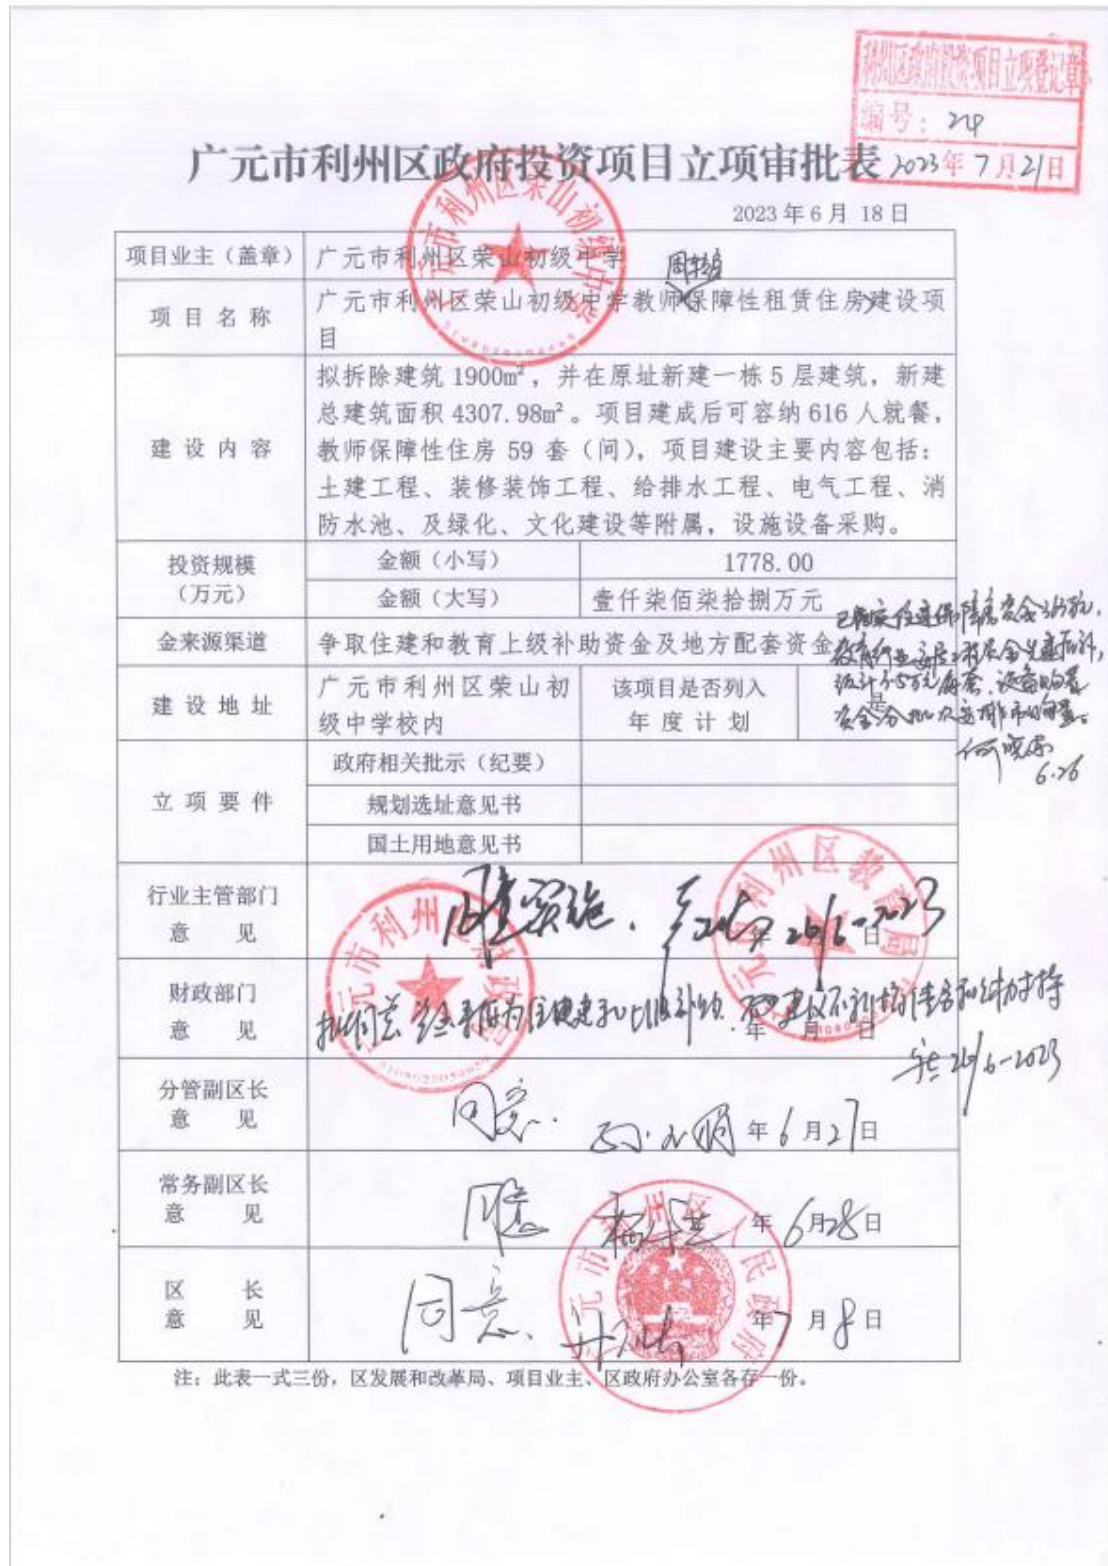 利州区政府投资项目立项登记章
编号：
2023年7月21日
广元市利州区政府投资项目立项审批表
2023年6月 18日
项目业主（盖章） 广元市利州区荣山初级中学
项 目 名 称 广元市利州区荣山初级中学教师保障性租赁住房建设项
目
建 设 内 容 拟拆除建筑 1900m²，并在原址新建一栋 5 层建筑，新建
总建筑面积 4307.98m²。项目建成后可容纳 616 人就餐，
教师保障性住房 59 套（间），项目建设主要内容包括：
土建工程、装修装饰工程、给排水工程、电气工程、消
防水池、及绿化、文化建设等附属，设施设备采购。
投资规模
（万元）
金额（小写） 1778.00
金额（大写） 壹仟柒佰柒拾捌万元
金来源渠道 争取住建和教育上级补助资金及地方配套资金
建 设 地 址 广元市利州区荣山初
级中学校内
该项目是否列入
年 度 计 划
是
6.26
立 项 要 件
政府相关批示（纪要）
规划选址意见书
国土用地意见书
行业主管部门
意 见
实施。
年 26/6-2023 日
财政部门
意 见
年 月 日
26/6-2023
分管副区长
意 见
同意. 年6月27日
常务副区长
意 见
同意 年6月28日
区 长
意 见
同意. 年7月8日
注：此表一式三份，区发展和改革局、项目业主、区政府办公室各存一份。